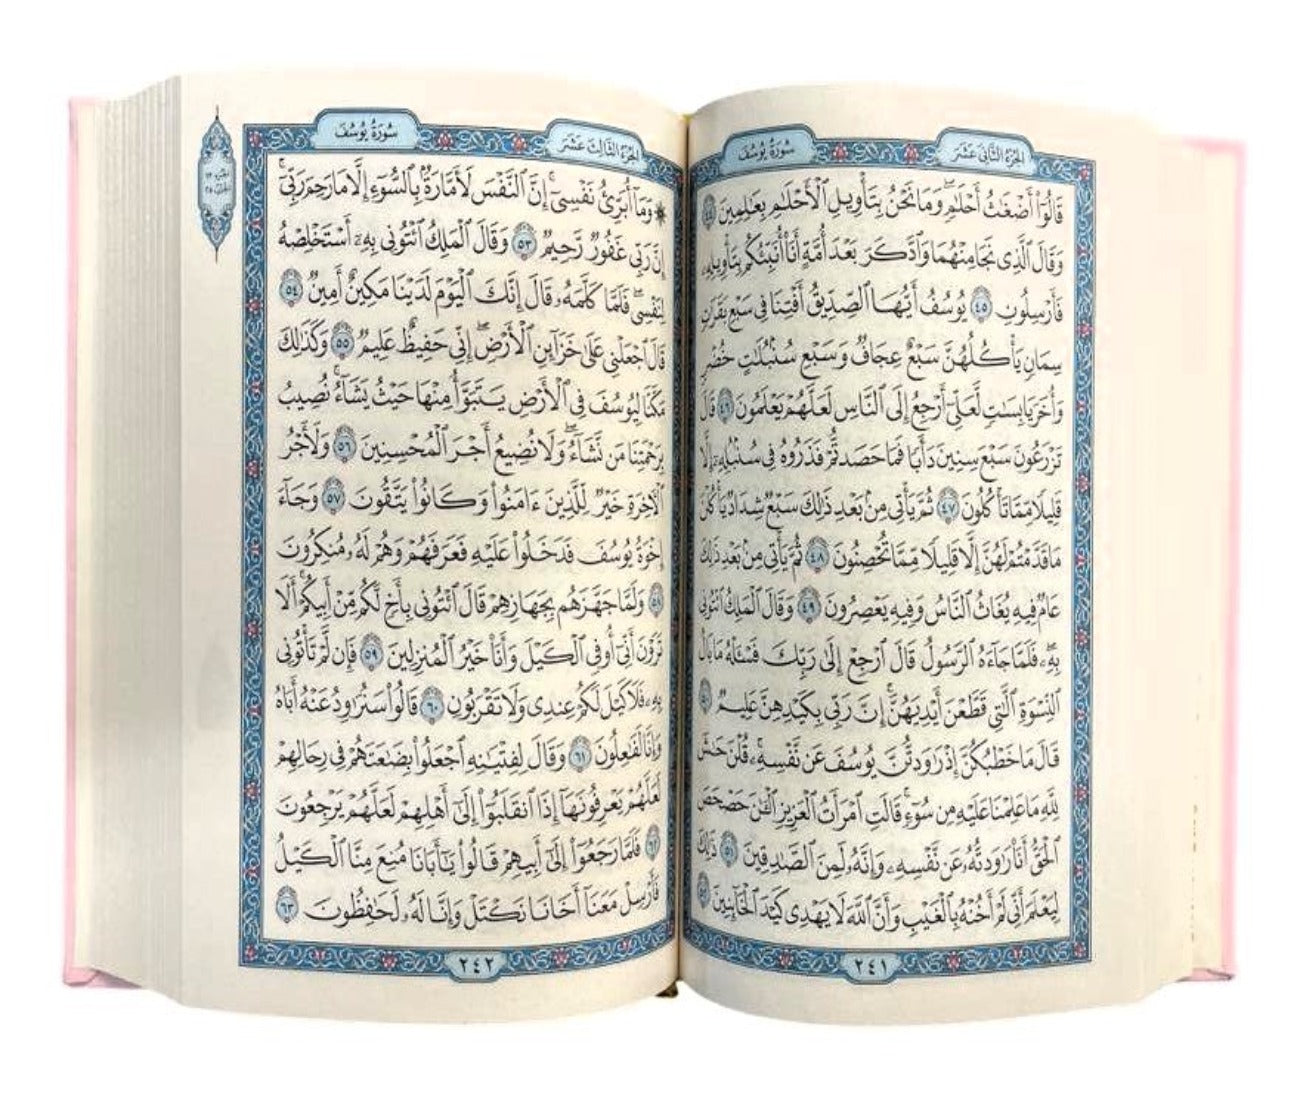 الجزء الثاني عشر
سورة يوسف
قَالُوٓا۟ أَضْغَٰثُ أَحْلَٰمٍۢ ۖ وَمَا نَحْنُ بِتَأْوِيلِ ٱلْأَحْلَٰمِ بِعَٰلِمِينَ ٤٤
وَقَالَ ٱلَّذِى نَجَا مِنْهُمَا وَٱدَّكَرَ بَعْدَ أُمَّةٍ أَنَا۠ أُنَبِّئُكُم بِتَأْوِيلِهِۦ
فَأَرْسِلُونِ ٤٥ يُوسُفُ أَيُّهَا ٱلصِّدِّيقُ أَفْتِنَا فِى سَبْعِ بَقَرَٰتٍۢ
سِمَانٍۢ يَأْكُلُهُنَّ سَبْعٌ عِجَافٌۭ وَسَبْعِ سُنۢبُلَٰتٍ خُضْرٍۢ
وَأُخَرَ يَابِسَٰتٍۢ لَّعَلِّىٓ أَرْجِعُ إِلَى ٱلنَّاسِ لَعَلَّهُمْ يَعْلَمُونَ ٤٦ قَالَ
تَزْرَعُونَ سَبْعَ سِنِينَ دَأَبًۭا فَمَا حَصَدتُّمْ فَذَرُوهُ فِى سُنۢبُلِهِۦٓ إِلَّا
قَلِيلًۭا مِّمَّا تَأْكُلُونَ ٤٧ ثُمَّ يَأْتِى مِنۢ بَعْدِ ذَٰلِكَ سَبْعٌۭ شِدَادٌۭ يَأْكُلْنَ
مَا قَدَّمْتُمْ لَهُنَّ إِلَّا قَلِيلًۭا مِّمَّا تُحْصِنُونَ ٤٨ ثُمَّ يَأْتِى مِنۢ بَعْدِ ذَٰلِكَ
عَامٌۭ فِيهِ يُغَاثُ ٱلنَّاسُ وَفِيهِ يَعْصِرُونَ ٤٩ وَقَالَ ٱلْمَلِكُ ٱئْتُونِى
بِهِۦ ۖ فَلَمَّا جَآءَهُ ٱلرَّسُولُ قَالَ ٱرْجِعْ إِلَىٰ رَبِّكَ فَسْـَٔلْهُ مَا بَالُ
ٱلنِّسْوَةِ ٱلَّٰتِى قَطَّعْنَ أَيْدِيَهُنَّ ۚ إِنَّ رَبِّى بِكَيْدِهِنَّ عَلِيمٌۭ ٥٠
قَالَ مَا خَطْبُكُنَّ إِذْ رَٰوَدتُّنَّ يُوسُفَ عَن نَّفْسِهِۦ ۚ قُلْنَ حَٰشَ
لِلَّهِ مَا عَلِمْنَا عَلَيْهِ مِن سُوٓءٍۢ ۚ قَالَتِ ٱمْرَأَتُ ٱلْعَزِيزِ ٱلْـَٰٔنَ حَصْحَصَ
ٱلْحَقُّ أَنَا۠ رَٰوَدتُّهُۥ عَن نَّفْسِهِۦ وَإِنَّهُۥ لَمِنَ ٱلصَّٰدِقِينَ ٥١ ذَٰلِكَ
لِيَعْلَمَ أَنِّى لَمْ أَخُنْهُ بِٱلْغَيْبِ وَأَنَّ ٱللَّهَ لَا يَهْدِى كَيْدَ ٱلْخَآئِنِينَ ٥٢
٢٤١
الجزء الثالث عشر
سورة يوسف
۞ وَمَآ أُبَرِّئُ نَفْسِىٓ ۚ إِنَّ ٱلنَّفْسَ لَأَمَّارَةٌۢ بِٱلسُّوٓءِ إِلَّا مَا رَحِمَ رَبِّىٓ ۚ
إِنَّ رَبِّى غَفُورٌۭ رَّحِيمٌۭ ٥٣ وَقَالَ ٱلْمَلِكُ ٱئْتُونِى بِهِۦٓ أَسْتَخْلِصْهُ
لِنَفْسِى ۖ فَلَمَّا كَلَّمَهُۥ قَالَ إِنَّكَ ٱلْيَوْمَ لَدَيْنَا مَكِينٌ أَمِينٌۭ ٥٤
قَالَ ٱجْعَلْنِى عَلَىٰ خَزَآئِنِ ٱلْأَرْضِ ۖ إِنِّى حَفِيظٌ عَلِيمٌۭ ٥٥ وَكَذَٰلِكَ
مَكَّنَّا لِيُوسُفَ فِى ٱلْأَرْضِ يَتَبَوَّأُ مِنْهَا حَيْثُ يَشَآءُ ۚ نُصِيبُ
بِرَحْمَتِنَا مَن نَّشَآءُ ۖ وَلَا نُضِيعُ أَجْرَ ٱلْمُحْسِنِينَ ٥٦ وَلَأَجْرُ
ٱلْـَٔاخِرَةِ خَيْرٌۭ لِّلَّذِينَ ءَامَنُوا۟ وَكَانُوا۟ يَتَّقُونَ ٥٧ وَجَآءَ
إِخْوَةُ يُوسُفَ فَدَخَلُوا۟ عَلَيْهِ فَعَرَفَهُمْ وَهُمْ لَهُۥ مُنكِرُونَ
٥٨ وَلَمَّا جَهَّزَهُم بِجَهَازِهِمْ قَالَ ٱئْتُونِى بِأَخٍۢ لَّكُم مِّنْ أَبِيكُمْ ۚ أَلَا
تَرَوْنَ أَنِّىٓ أُوفِى ٱلْكَيْلَ وَأَنَا۠ خَيْرُ ٱلْمُنزِلِينَ ٥٩ فَإِن لَّمْ تَأْتُونِى
بِهِۦ فَلَا كَيْلَ لَكُمْ عِندِى وَلَا تَقْرَبُونِ ٦٠ قَالُوا۟ سَنُرَٰوِدُ عَنْهُ أَبَاهُ
وَإِنَّا لَفَٰعِلُونَ ٦١ وَقَالَ لِفِتْيَٰنِهِ ٱجْعَلُوا۟ بِضَٰعَتَهُمْ فِى رِحَالِهِمْ
لَعَلَّهُمْ يَعْرِفُونَهَآ إِذَا ٱنقَلَبُوٓا۟ إِلَىٰٓ أَهْلِهِمْ لَعَلَّهُمْ يَرْجِعُونَ
٦٢ فَلَمَّا رَجَعُوٓا۟ إِلَىٰٓ أَبِيهِمْ قَالُوا۟ يَٰٓأَبَانَا مُنِعَ مِنَّا ٱلْكَيْلُ
فَأَرْسِلْ مَعَنَآ أَخَانَا نَكْتَلْ وَإِنَّا لَهُۥ لَحَٰفِظُونَ ٦٣
٢٤٢